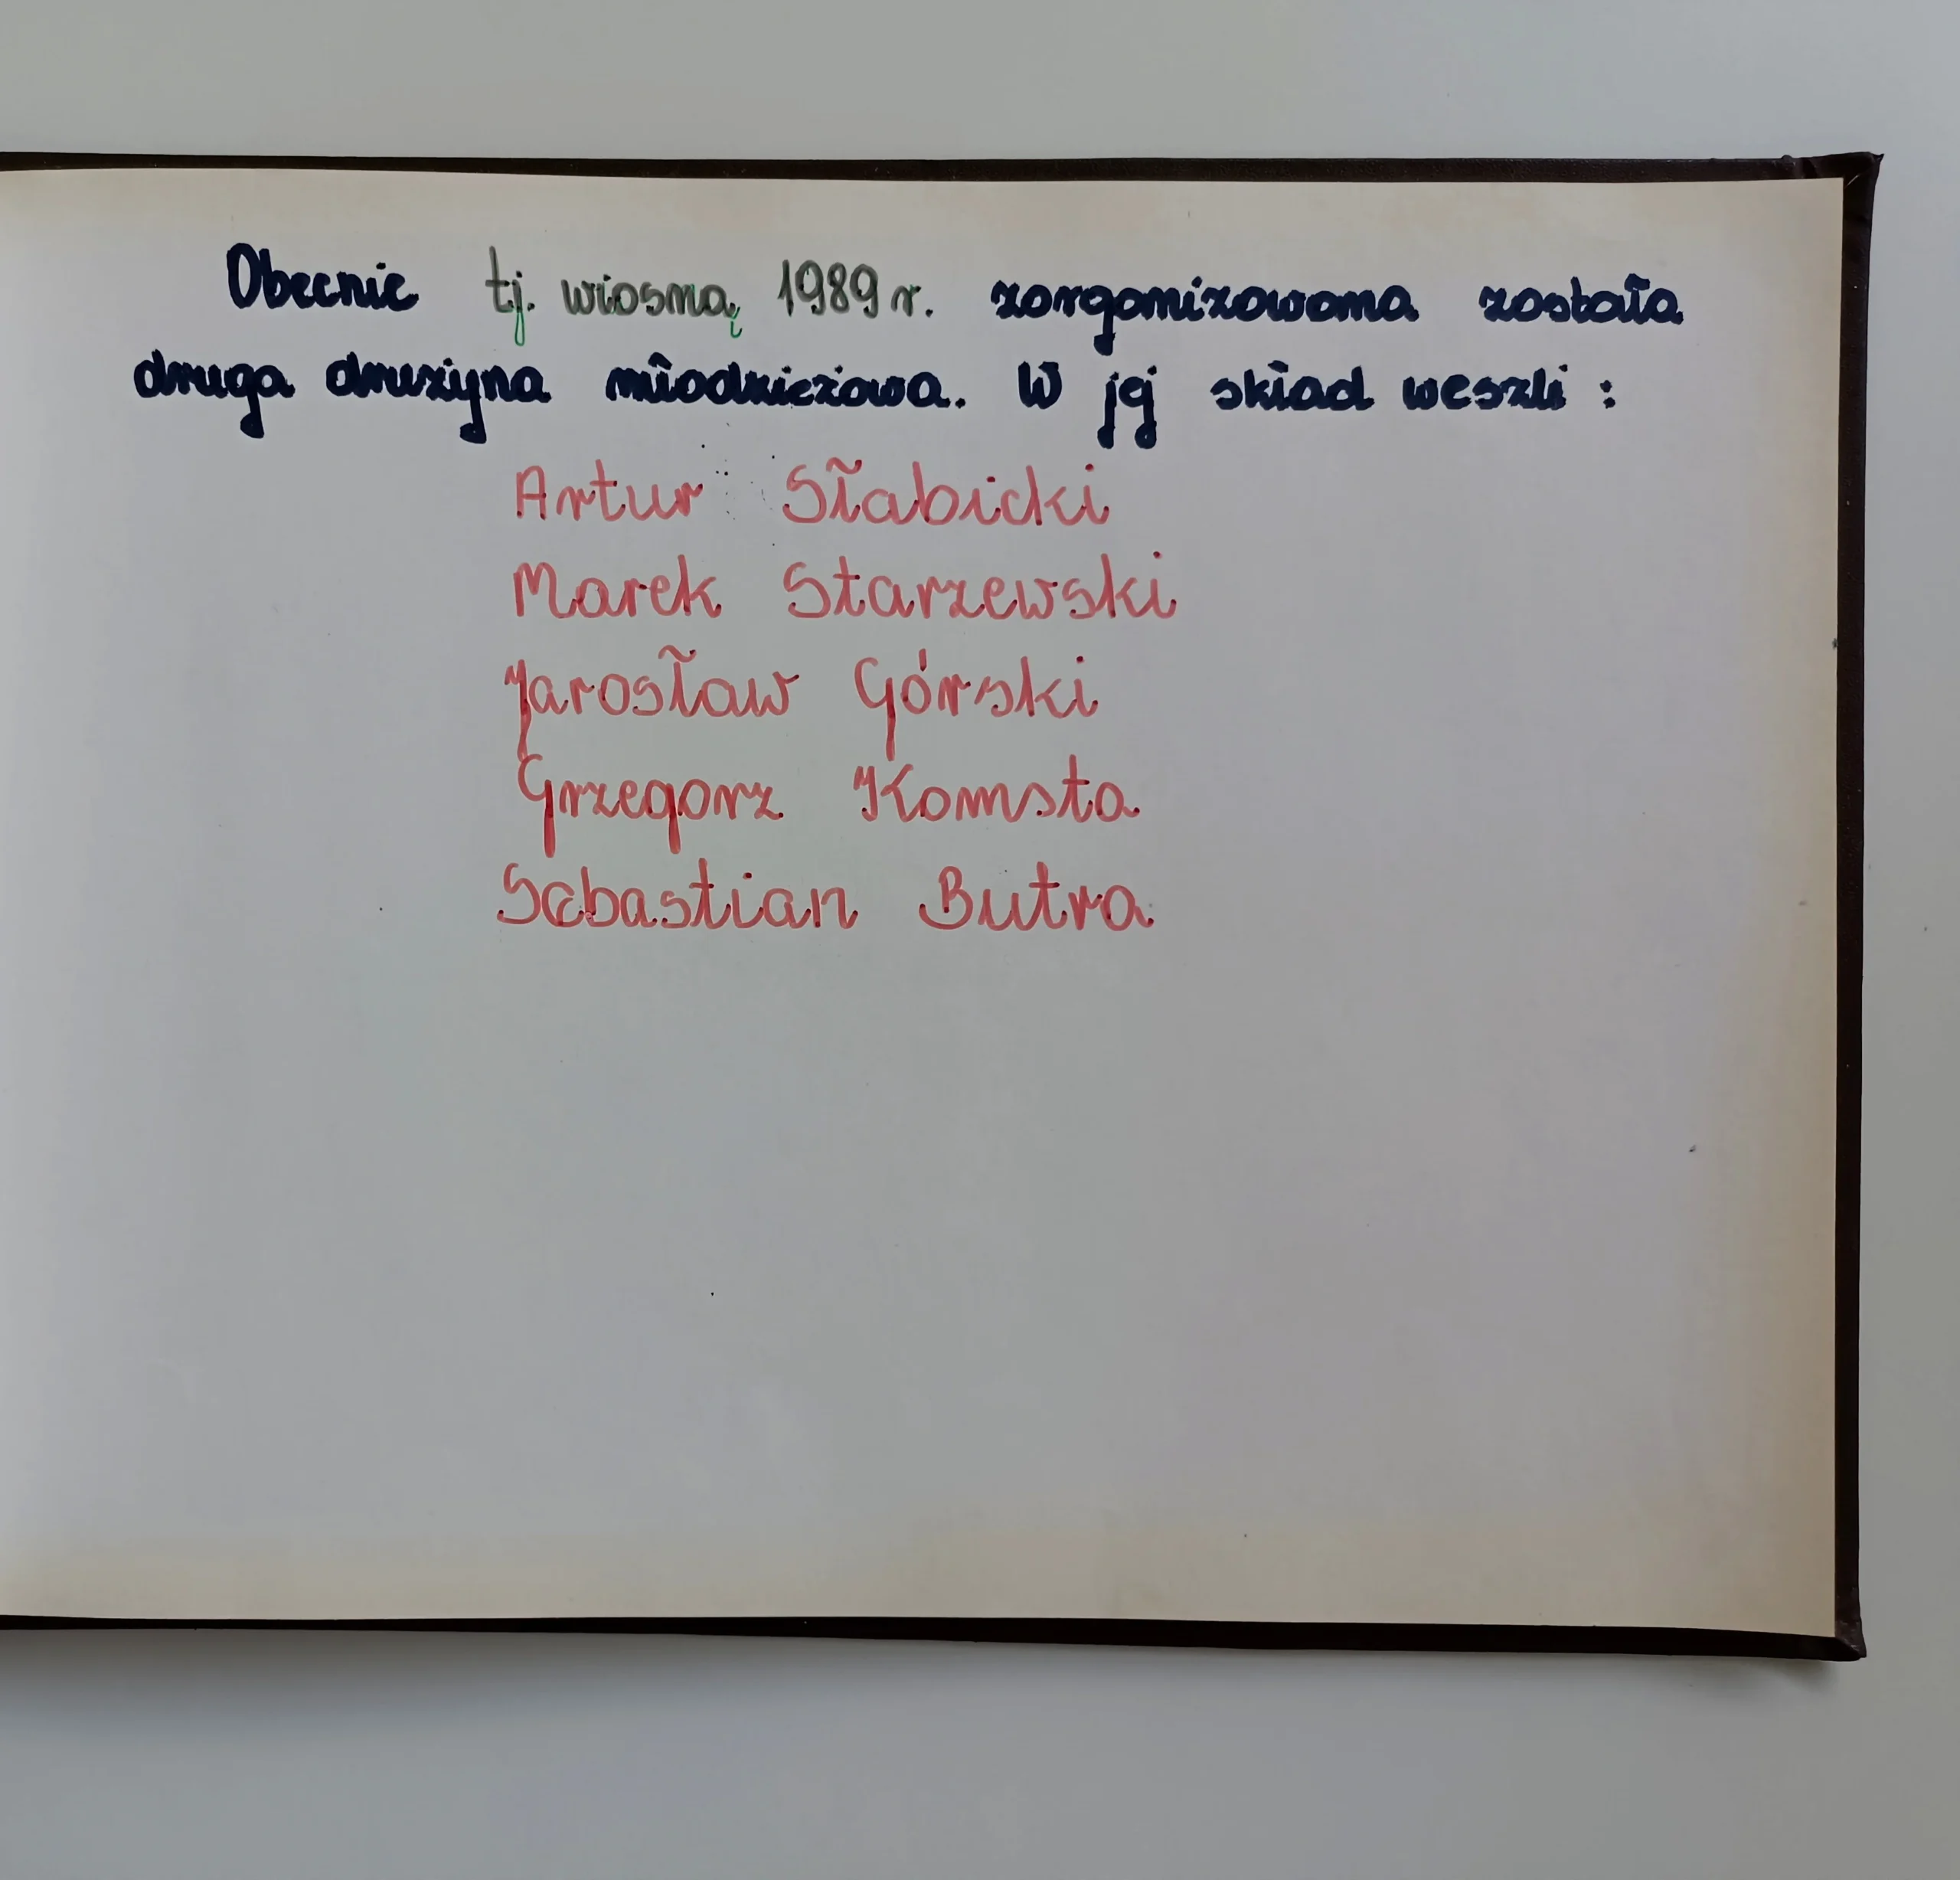 Obecnie tj. wiosną 1989 r. zorganizowana została
druga drużyna młodzieżowa. W jej skład weszli :
Artur Słabicki
Marek Starzewski
Jarosław Górski
Grzegorz Komsta
Sebastian Butra